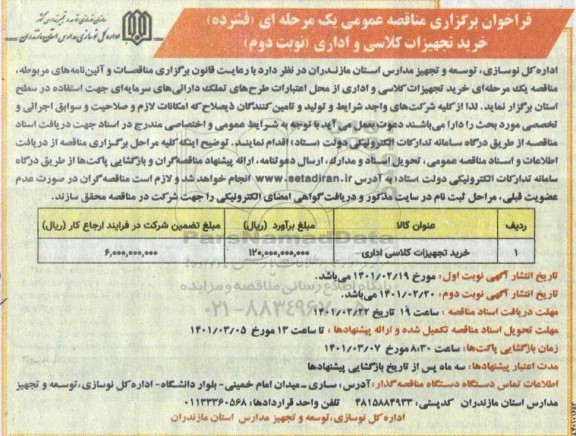 فراخوان برگزاری مناقصه عمومی یک مرحله ای (فشرده)
خرید تجهیزات کلاسی و اداری (نوبت دوم)
سازمان نوسازی، توسعه و تجهیز مدارس کشور
اداره کل نوسازی مدارس استان مازندران
اداره کل نوسازی، توسعه و تجهیز مدارس استان مازندران در نظر دارد با رعایت قانون برگزاری مناقصات و آئین‌نامه‌های مربوطه،
مناقصه یک مرحله‌ای خرید تجهیزات کلاسی و اداری از محل اعتبارات طرح‌های تملک دارائی‌های سرمایه‌ای جهت استفاده در سطح
استان برگزار نماید. لذا از کلیه شرکت‌های واجد شرایط و تولید و تامین کنندگان ذیصلاح که امکانات لازم و صلاحیت و سوابق اجرائی و
تخصصی مورد بحث را دارا می‌باشند دعوت بعمل می آید با توجه به شرایط عمومی و اختصاصی مندرج در اسناد جهت دریافت اسناد
مناقصه از طریق درگاه سامانه تدارکات الکترونیکی دولت (ستاد) اقدام نمایند. توضیح اینکه کلیه مراحل برگزاری مناقصه از دریافت
اطلاعات و اسناد مناقصه عمومی، تحویل اسناد و مدارک، ارسال دعوتنامه، ارائه پیشنهاد مناقصه‌گران و بازگشایی پاکت‌ها از طریق درگاه
سامانه تدارکات الکترونیکی دولت ستاد) به آدرس www.setadiran.ir انجام خواهد شد و لازم است مناقصه‌گران در صورت عدم
عضویت قبلی، مراحل ثبت نام در سایت مذکور و دریافت گواهی امضای الکترونیکی را جهت شرکت در مناقصه محقق سازند.
ردیف عنوان کالا مبلغ برآورد (ریال) مبلغ تضمین شرکت در فرایند ارجاع کار (ریال)
۱ خرید تجهیزات کلاسی اداری ۱۲۰,۰۰۰,۰۰۰,۰۰۰ ۶,۰۰۰,۰۰۰,۰۰۰
ParsNamadData
تاریخ انتشار آگهی نوبت اول: مورخ ۱۴۰۱/۰۲/۱۹ می‌باشد.
تاریخ انتشار آگهی نوبت دوم: ۱۴۰۱/۰۲/۲۰ می‌باشد.
پایگاه اطلاع رسانی مناقصه و مزایده
مهلت دریافت اسناد مناقصه : ساعت ۱۹ تاریخ ۱۴۰۱/۰۲/۲۲
مهلت تحویل اسناد مناقصه تکمیل شده و ارائه پیشنهادها : تا ساعت ۱۳ مورخ ۱۴۰۱/۰۳/۰۵
زمان بازگشایی پاکت‌ها: ساعت ۸:۳۰ مورخ ۱۴۰۱/۰۳/۰۷
مدت اعتبار پیشنهادها: سه ماه پس از تاریخ بازگشایی پیشنهادها
اطلاعات تماس دستگاه دستگاه مناقصه گذار: آدرس: ساری ـ میدان امام خمینی- بلوار دانشگاه- اداره کل نوسازی، توسعه و تجهیز
مدارس استان مازندران کدپستی: ۴۸۱۵۸۸۴۹۳۳ تلفن واحد قراردادها: ۰۱۱۳۳۳۶۰۵۶۸
اداره کل نوسازی، توسعه و تجهیز مدارس استان مازندران